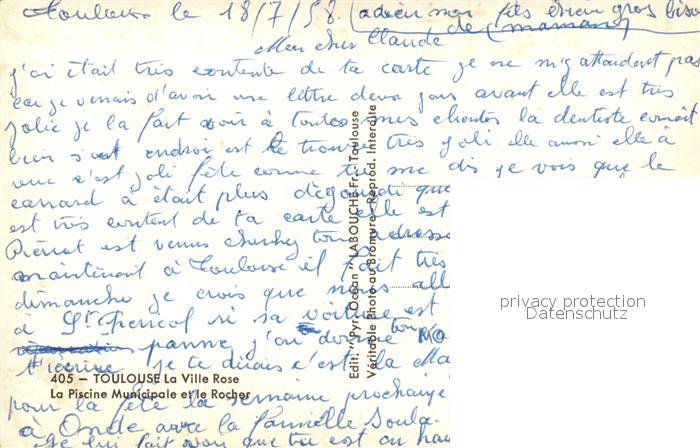 Toulouse le 18/7/58. (adieu mon fils et un gros bise
de (maman)
Mon cher Claude
j'ai était très contente de ta carte je ne m'y attendait pas
car je venais d'avoir une lettre deux jours avant elle est très
jolie je la fait voir à toutes mes clientes la dentiste connait
bien s'est endroi est le trouve très joli elle aussi elle à
vue c'est joli fête comme tu me dis je vois que le
canard à était plus dégourdi que
est très content de ta carte elle est
Pierrot est venus chercher ton adresse
maintenant à Toulouse il fait très
dimanche je crois que nous all
à St Ferréol si sa voiture est
panne j'ai donné ton
je te dirais c'est la Ma
pour la fête la semaine prochaine
à Onde avec la famille Soula.
je lui fait voir que tu est au
405 — TOULOUSE La Ville Rose
La Piscine Municipale et le Rocher
Edit. "Pyr. Océan" LABOUCHE Fr. Toulouse
Véritable Photo au Bromure - Reprod. Interdite
privacy protection
Datenschutz